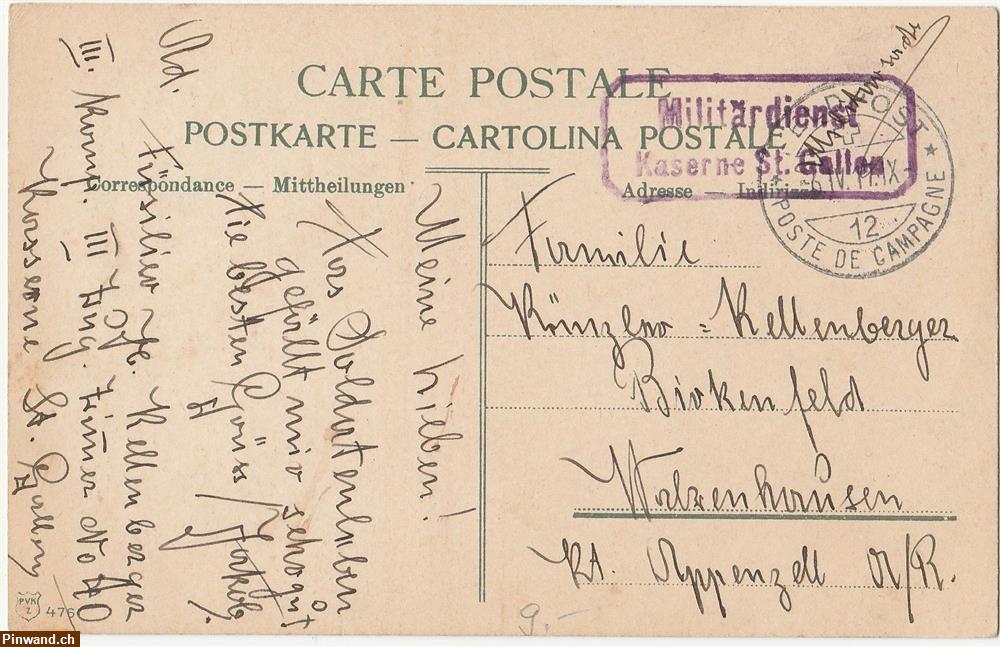 CARTE POSTALE
POSTKARTE — CARTOLINA POSTALE
Correspondance — Mittheilungen
Adresse — Indirizzo
Militärdienst
Kaserne St. Gallen
FELDPOST
6 IV. 11. IX-
12
POSTE DE CAMPAGNE
Familie
Künzler = Kellenberger
Birkenfeld
Walzenhausen
Kt. Appenzell A/R.
Meine Lieben!
Das Soldatenleben
gefällt mir
Die besten Grüss
Jakob.
Füsilier Jk. Kellenberger
III. Komp. III Zug. Zimer No 40
Kaserne St. Gallen
9.-
PVK
Z
476
Pinwand.ch